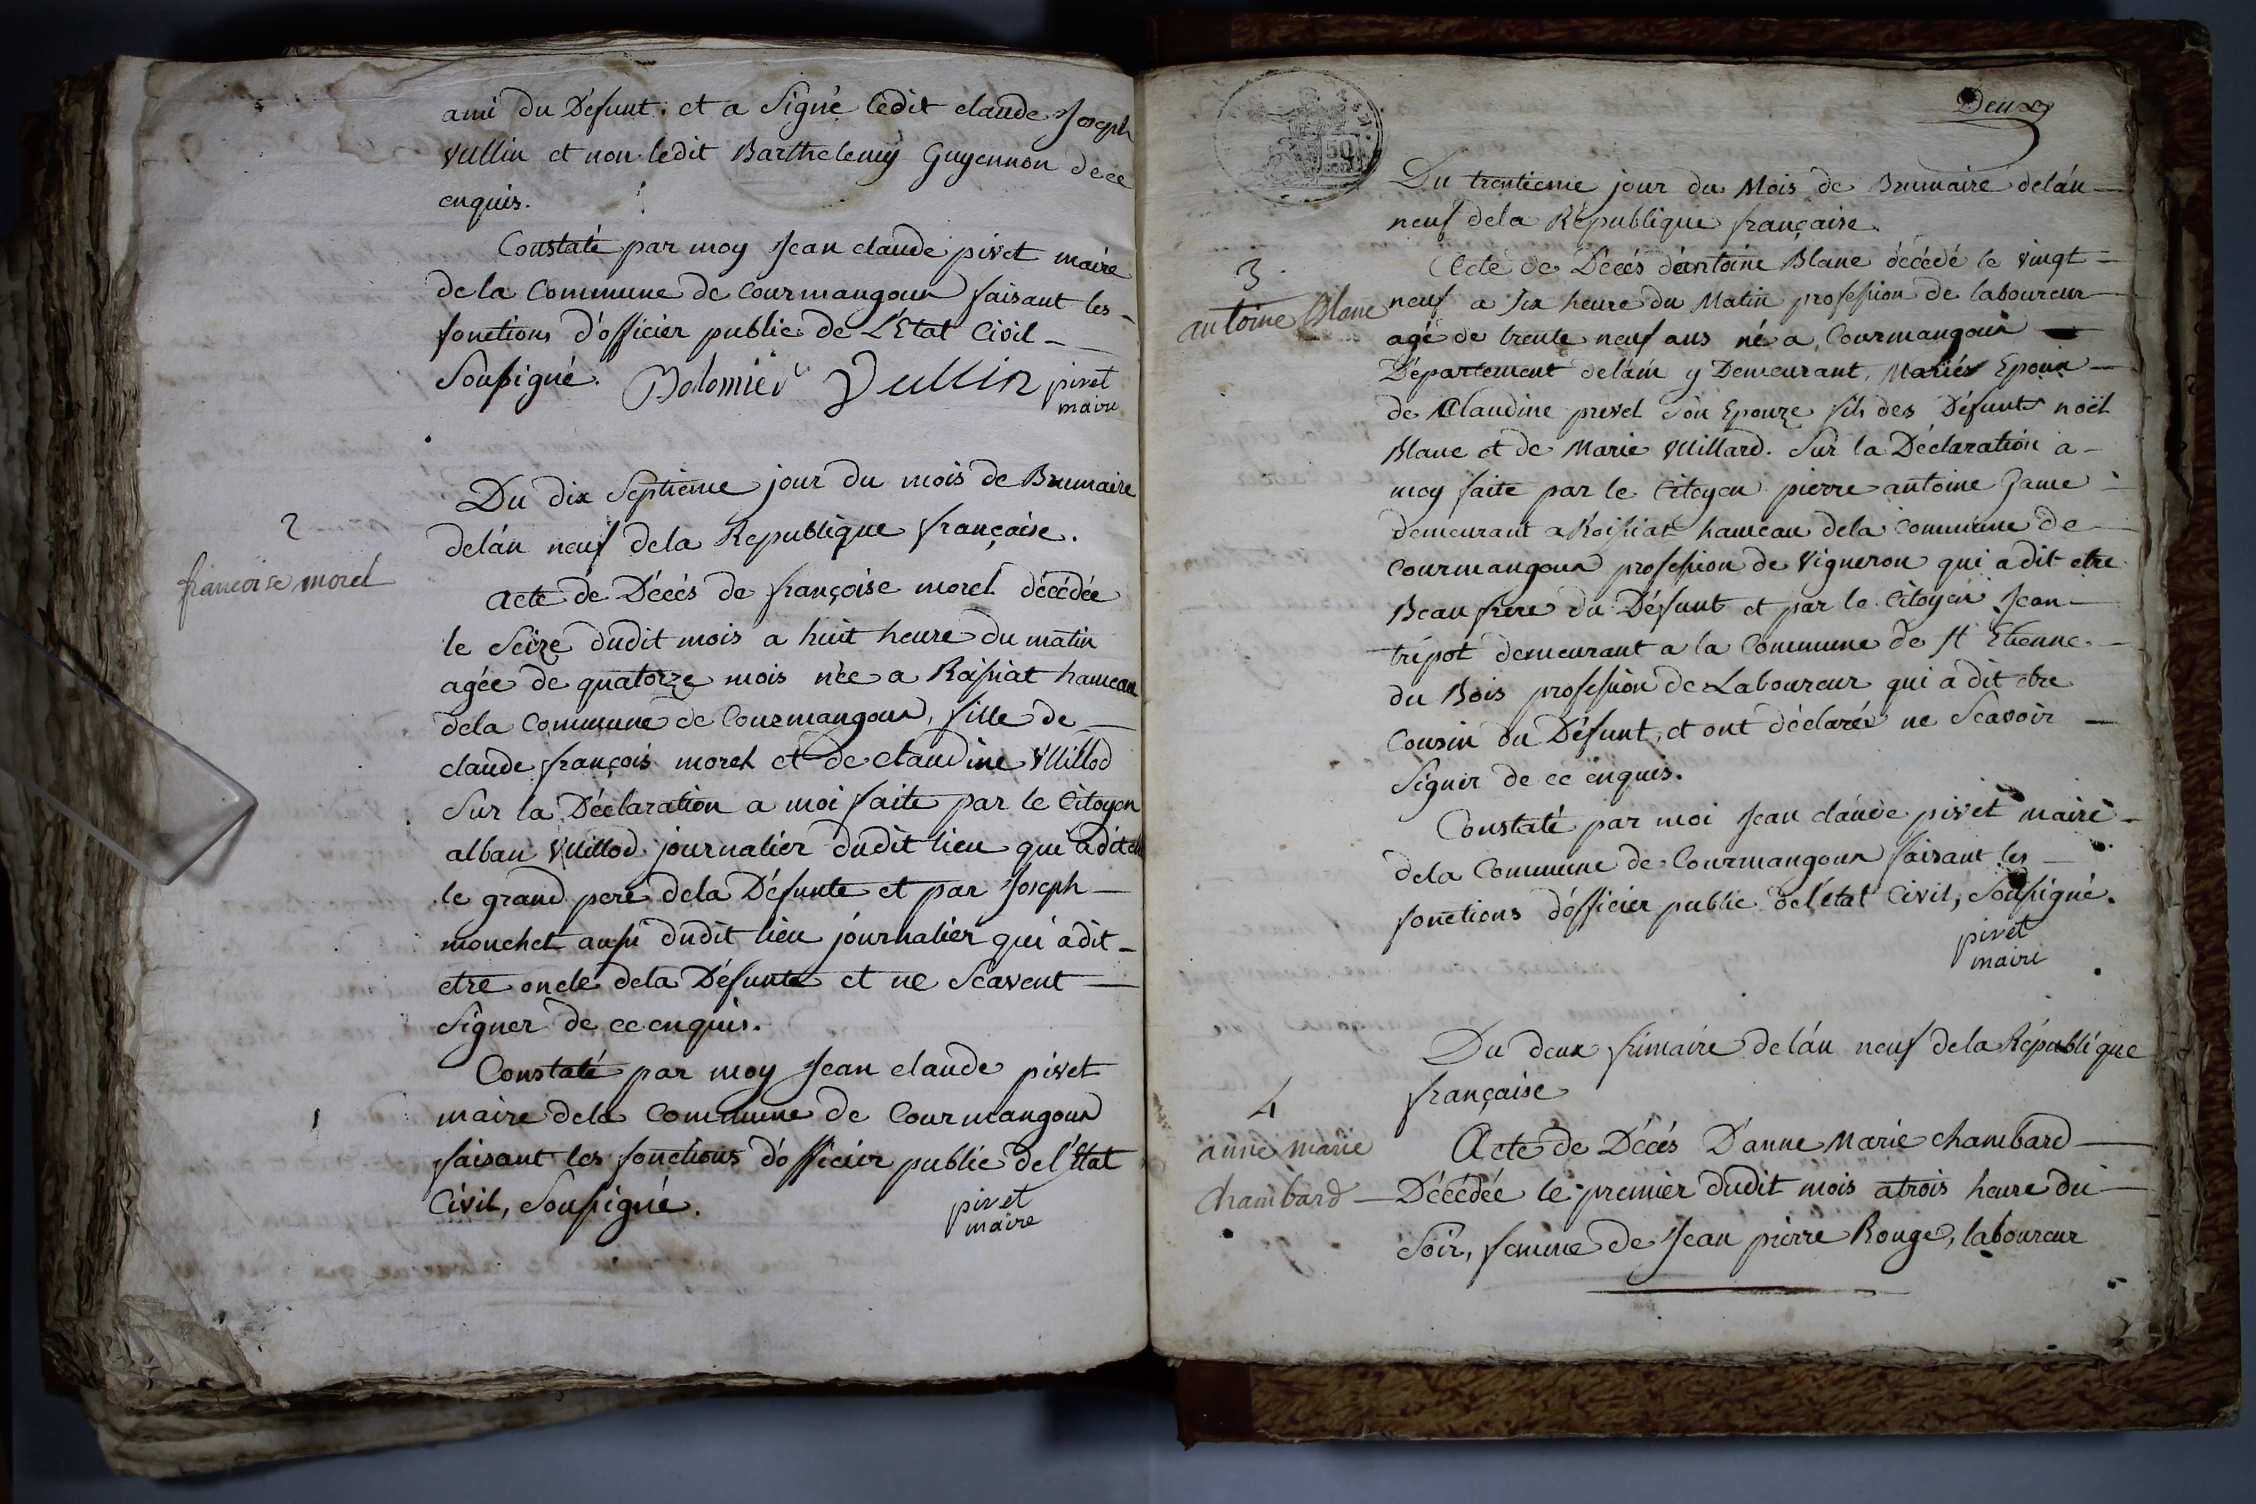 ami du Défunt. et a Signé ledit claude Joseph
Vullin et non ledit Barthelemy Guyennon de ce
enquis.
Constaté par moy Jean claude pivet maire
de la Commune de Courmangoux faisant les
fonctions d'officier public de L'Etat Civil
Soussigné. Bolomier Vullin pivet
maire
2
francoise morel
Du dix Septieme jour du mois de Brumaire
de l'an neuf de la Republique française.
Acte de Décés de françoise morel décédée
le Seize dudit mois a huit heure du matin
agée de quatorze mois née a Rassiat hameau
de la Commune de Courmangoux, fille de
claude françois morel et de claudine Vuillod
Sur la Déclaration a moi faite par le Citoyen
alban Vuillod journalier dudit lieu qui a dit etre
le grand pere de la Défunte et par Joseph
mouchet aussi dudit lieu journalier qui a dit
etre oncle de la Défunte et ne Scavent
Signer de ce enquis.
Constaté par moy Jean claude pivet
maire de la Commune de Courmangoux
faisant les fonctions d'officier public de l'Etat
Civil, Soussigné.
pivet
maire
Deux
Du trentieme jour du Mois de Brumaire de l'an
neuf de la République française.
3
antoine Blanc
Acte de Décés d'antoine Blanc décédé le vingt
neuf a six heure du Matin profession de laboureur
agé de trente neuf ans né a Courmangoux
Département de l'ain y Demeurant, Mariés Epoux
de Claudine prevel Son Epouze fils des Défunts noël
Blanc et de Marie Vuillard. Sur la Déclaration a
moy faite par le Citoyen pierre antoine
demeurant a Roissiat hameau de la Commune de
Courmangoux profession de Vigneron qui a dit etre
Beau frere du Défunt et par le Citoyen Jean
tripot demeurant a la Commune de St Etienne
du Bois profession de Laboureur qui a dit etre
Cousin du Défunt, et ont déclarés ne Scavoir
Signer de ce enquis.
Constaté par moi Jean claude pivet maire
de la Commune de Courmangoux faisant les
fonctions d'officier public de l'état Civil, Soussigné.
pivet
maire
Du deux frimaire de l'an neuf de la République
française
4
anne marie
Chambard
Acte de Décés D'anne Marie chambard
Décédée le premier dudit mois a trois heure du
Soir, femme de Jean pierre Rouge, laboureur